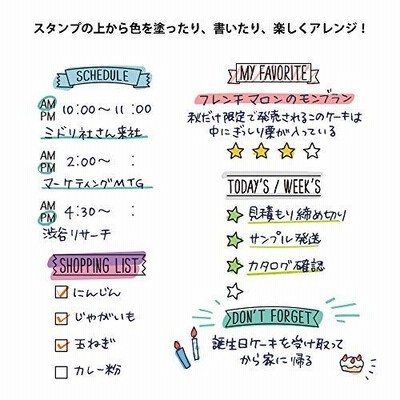 スタンプの上から色を塗ったり、書いたり、楽しくアレンジ！
SCHEDULE
AM
PM 10:00〜11:00
ミドリ社さん来社
AM
PM 2:00〜 :
マーケティングMTG
AM
PM 4:30〜 :
渋谷リサーチ
SHOPPING LIST
にんじん
じゃがいも
玉ねぎ
カレー粉
MY FAVORITE
フレンチマロンのモンブラン
秋だけ限定で発売されるこのケーキは
中にぎっしり栗が入っている
TODAY'S / WEEK'S
見積もり締め切り
サンプル発送
カタログ確認
DON'T FORGET
誕生日ケーキを受け取って
から家に帰る